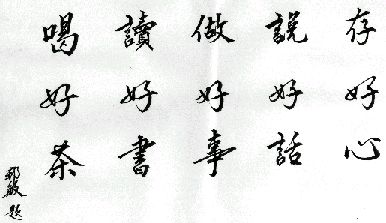 存好心
說好話
做好事
讀好書
喝好茶